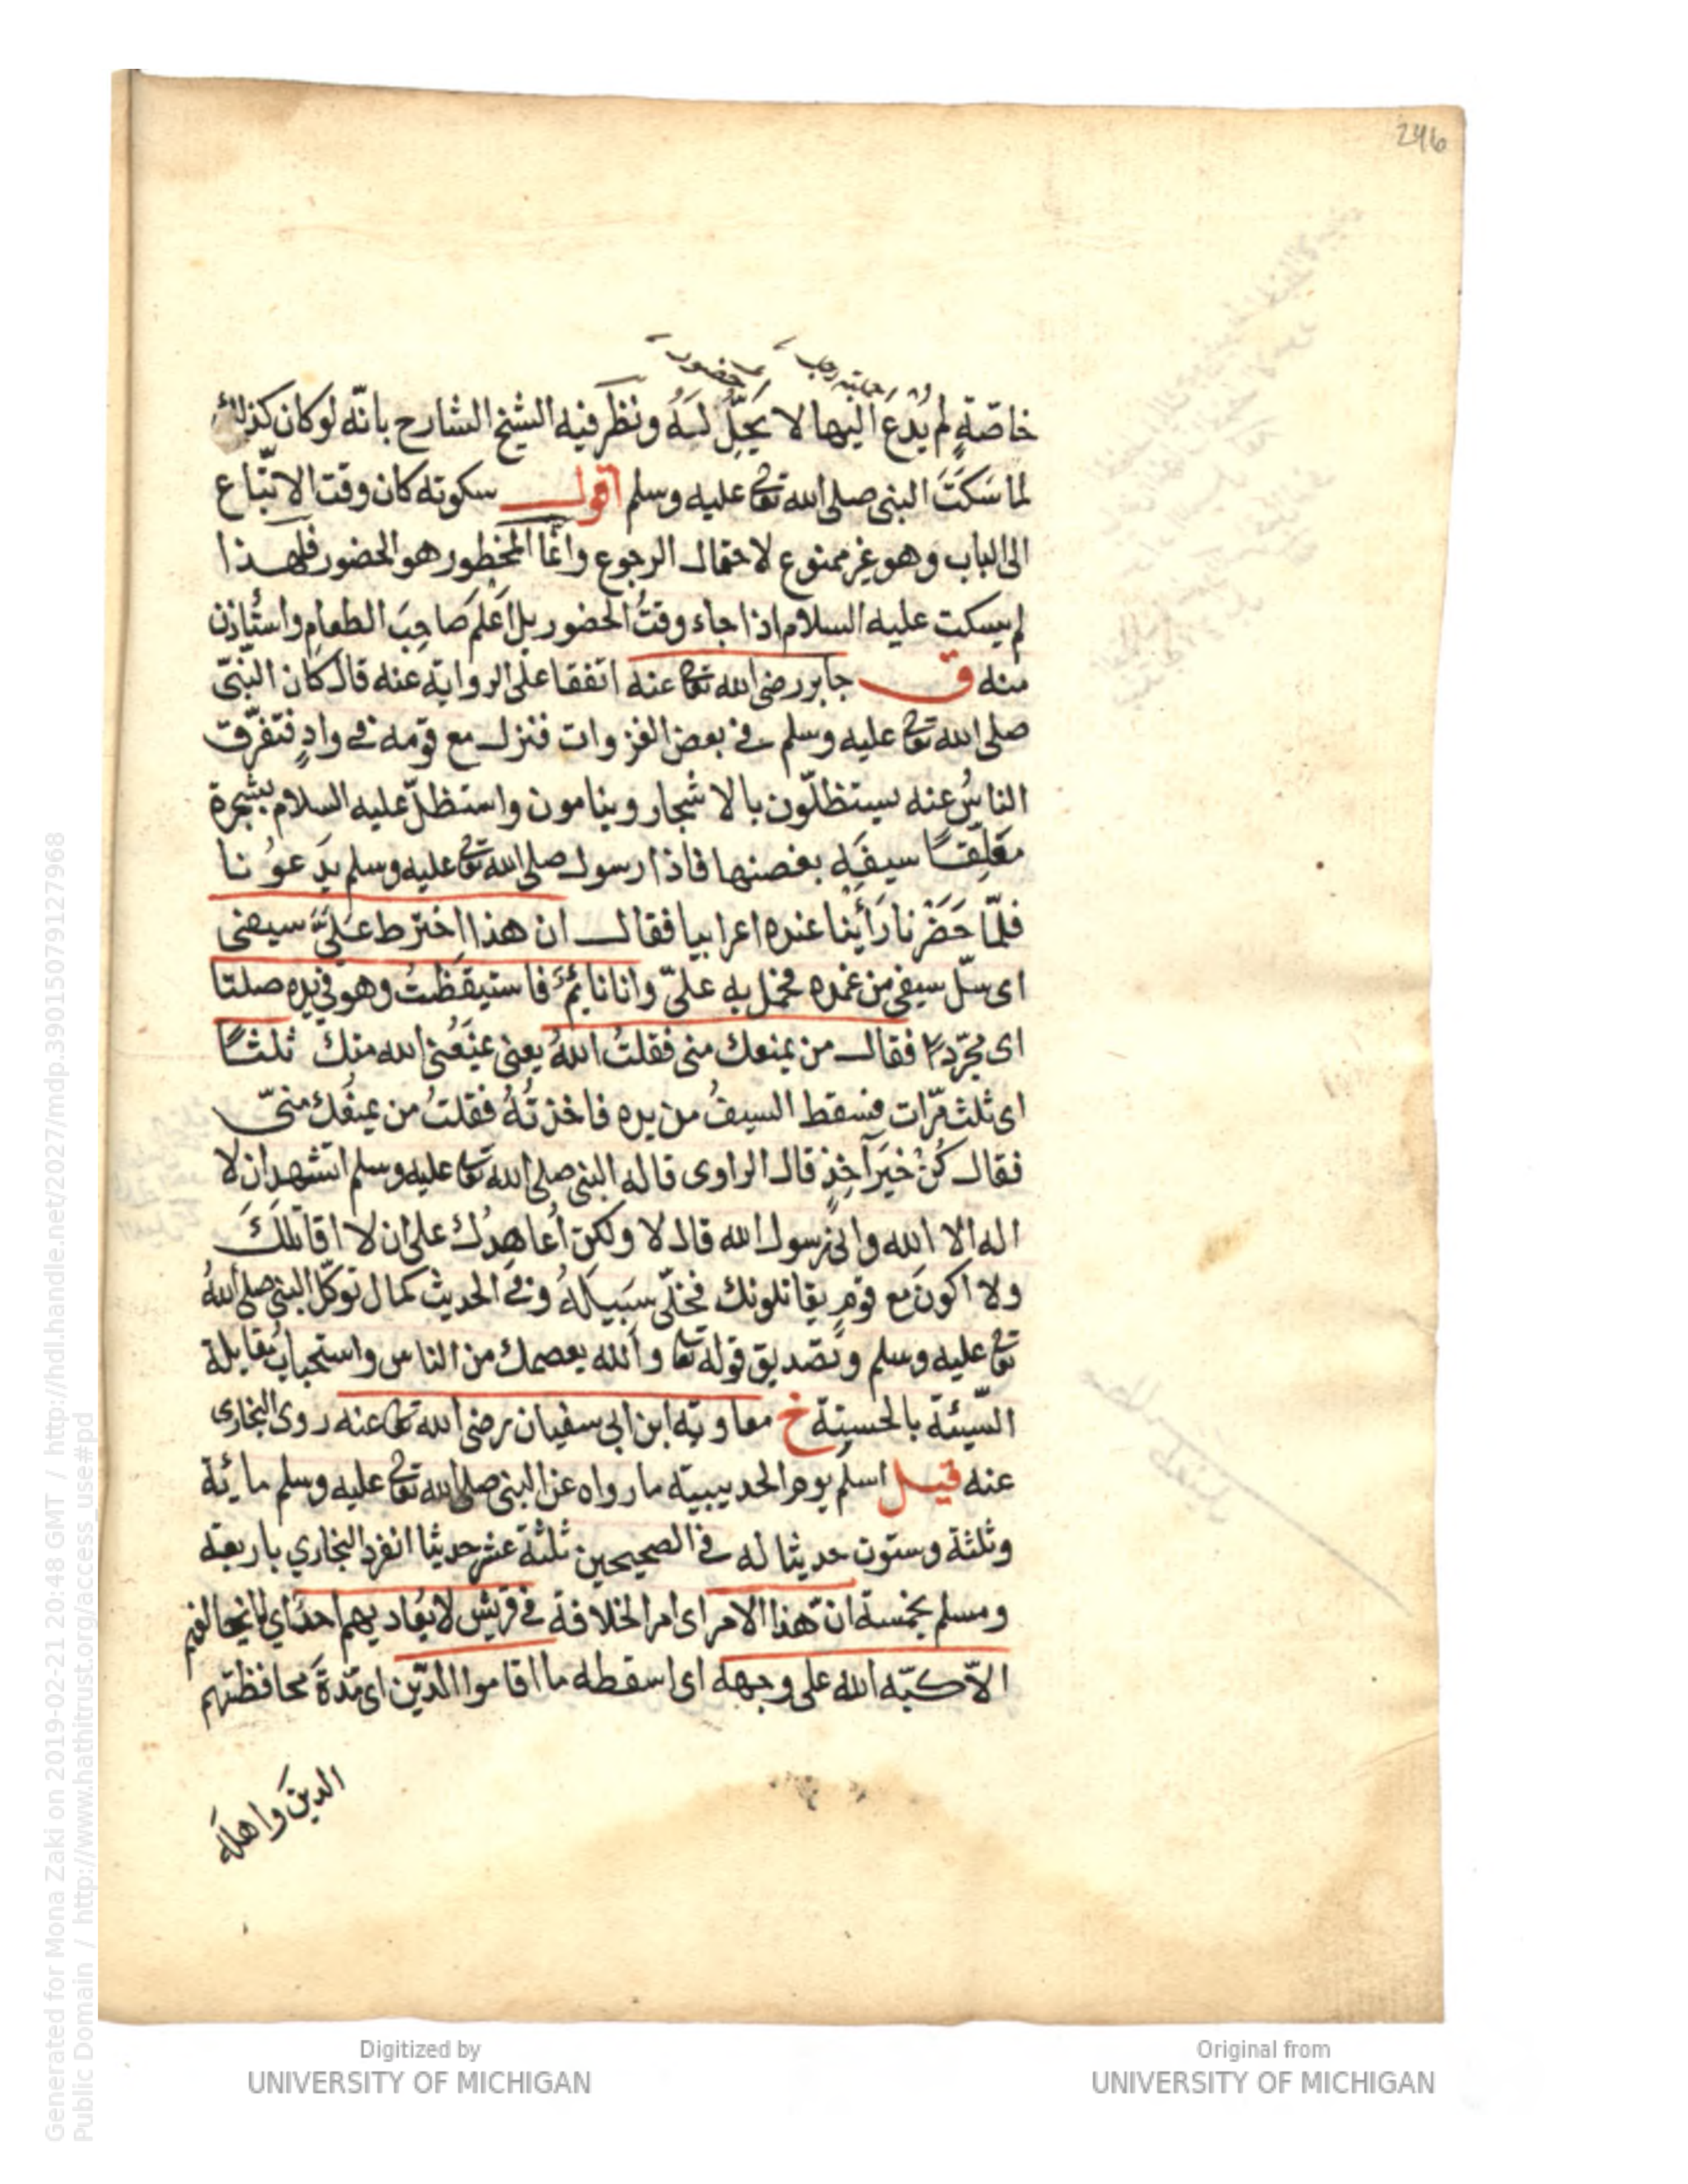 246
حضور
خاصّةٍ لم يُدْعَ اليها لا يَحِلّ لَهُ ونَظَر فيه الشيخ الشارح بانّه لو كان كذلك
لما سَكَتَ النبى صلى الله تعالى عليه وسلم اقول سكوته كان وقت الاتّباع
الى الباب وهو غير ممنوع لاحتمال الرجوع وانّما المحظور هو الحضور فلهذا
لم يسكت عليه السلام اذا جاء وقتُ الحضور بل اَعْلَمَ صَاحِبَ الطعامِ واستأذن
منه ق جابر رضى الله تعالى عنه اتفقا على الرواية عنه قال كان النبّى
صلى الله تعالى عليه وسلم فى بعض الغزوات فنزل مع قومه فى وادٍ فتفرّق
الناسُ عنه يستظلّون بالاشجار وينامون واستظلّ عليه السلام بشجرة
مَعَلِّقًا سيفَه بغصنها فاذا رسول صلى الله تعالى عليه وسلم يَدعُونا
فلمّا حَضَرْنا رَأَيْنا عنده اعرابيا فقال ان هذا اخترط علىّ سيفى
اى سلّ سيفى من غمده فحمل به علىّ وانا نائمٌ فاستيقظتُ وهو فى يده صلتا
اى مجرّدا فقال من يمنعك منى فقلتُ اللهُ يعنى يمنَعُنى الله منك ثلثًا
اى ثلث مرّات فسقط السيفُ من يده فاخذتُهُ فقلتُ من يمنعُك منّى
فقال كُنْ خيرَ آخِذٍ قال الراوى قاله النبى صلى الله تعالى عليه وسلم اتشهد ان لا
اله الا الله وانى رسول الله قال لا ولكن اُعاهِدُك على ان لا اقاتلكَ
ولا اكونَ مع قومٍ يقاتلونك فخلّى سَبِيلَهُ وفى الحديث كمال توكّل النبى صلى اللهُ
تعالى عليه وسلم وتصديق قوله تعالى والله يعصمك من الناس واستحبابُ مقابلة
السّيئة بالحسنة خ معاوية ابن ابى سفيان رضى الله تعالى عنه روى البخارى
عنه قيل اسلم يوم الحديبية ما رواه عن النبى صلى الله تعالى عليه وسلم مائة
وثلثة وستون حديثا له فى الصحيحين ثلثة عشر حديثا انفرد البخاري باربعة
ومسلم بخمسة انّ هذا الامر اى امر الخلافة فى قريش لا يُعاديهم احدٌ اي لا يخالفهم
الاّ كبّه الله على وجهه اى اسقطه ما اقاموا الدّين اى مدّةَ محافظتهم
الدينَ واهلَه
Generated for Mona Zaki on 2019-02-21 20:48 GMT / http://hdl.handle.net/2027/mdp.39015079127968
Public Domain / http://www.hathitrust.org/access_use#pd
Digitized by
UNIVERSITY OF MICHIGAN
Original from
UNIVERSITY OF MICHIGAN